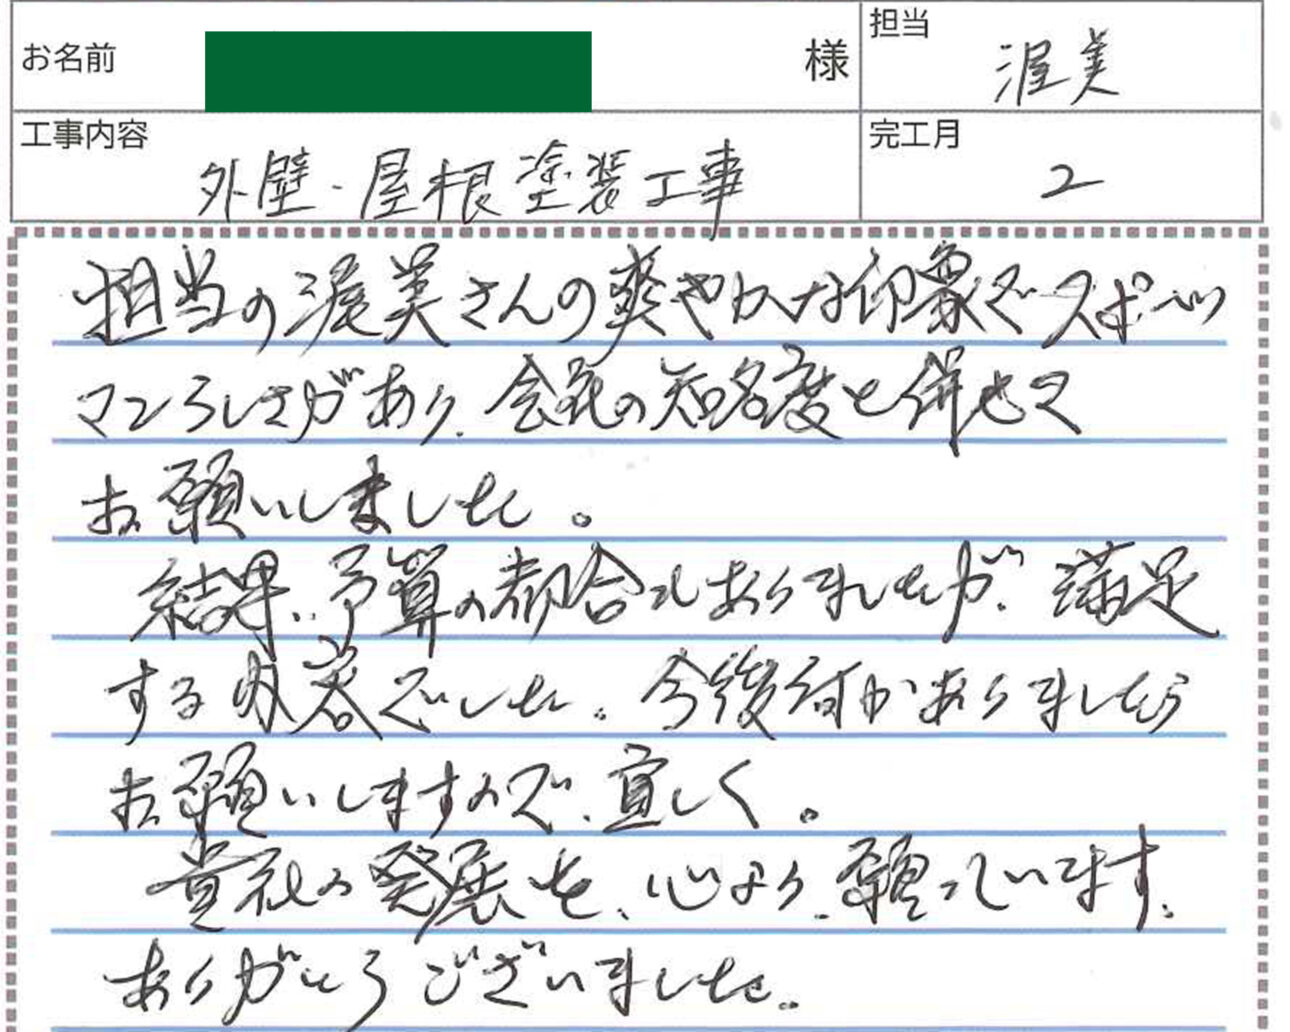 お名前 様
担当 渥美
工事内容 外壁・屋根塗装工事
完工月 2
担当の渥美さんの爽やかな印象でスポーツ
マンらしさがあり、会社の知名度と併せて
お願いしました。
結果、予算の都合もありましたが、満足
する内容でした。今後何かありましたら
お願いしますので、宜しく。
貴社の発展を、心より、願っています。
ありがとうございました。